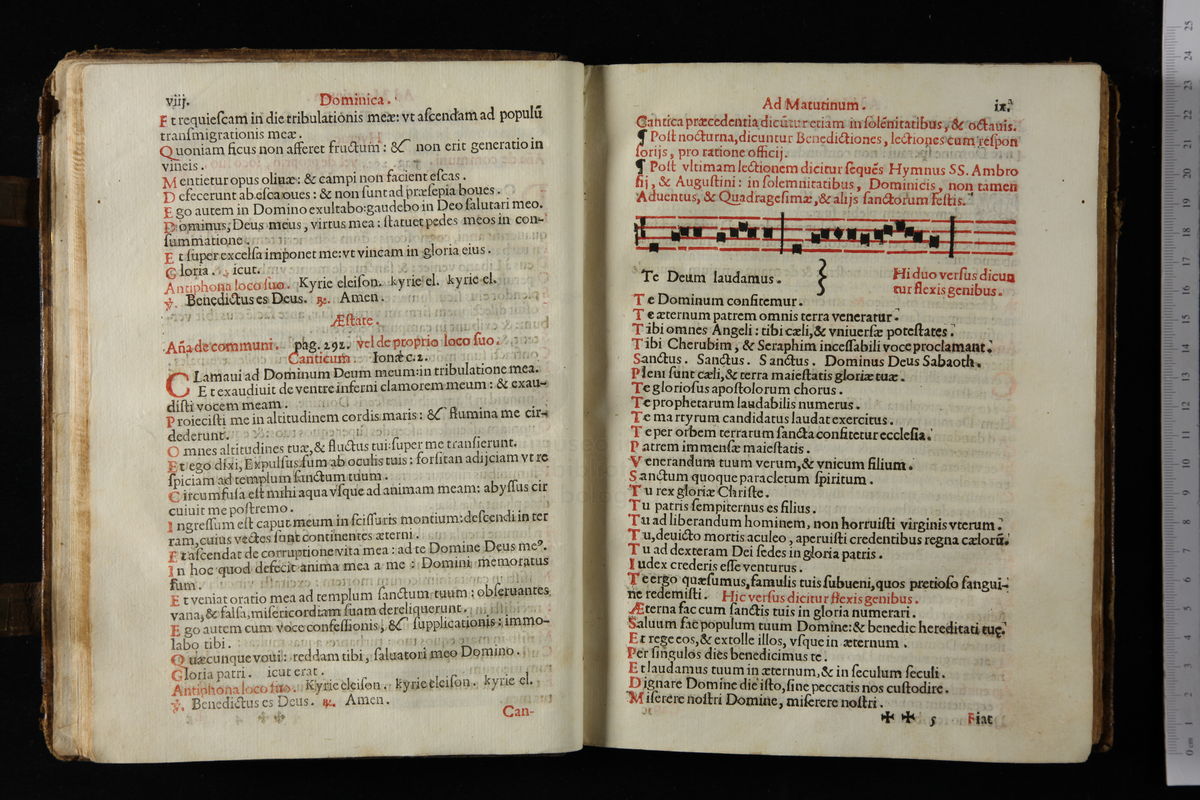 viij.
Dominica.
Et requieſcam in die tribulationis meæ: vt aſcendam ad populũ
tranſmigrationis meæ.
Quoniam ficus non afferet fructum: & non erit generatio in
vineis.
Mentietur opus oliuæ: & campi non facient eſcas.
Defecerunt ab eſca oues: & non ſunt ad præſepia boues.
Ego autem in Domino exultabo: gaudebo in Deo ſalutari meo.
Dominus, Deus meus, virtus mea: ſtatuet pedes meos in con-
ſummatione.
Et ſuper excelſa imponet me: vt vincam in gloria eius.
Gloria. icut.
Antiphona loco ſuo. Kyrie eleiſon. kyrie el. kyrie el.
℣. Benedictus es Deus. ℟. Amen.
Æſtate.
Aña de communi. pag. 292. vel de proprio loco ſuo.
Canticum Ionæ c. 2.
CLamaui ad Dominum Deum meum: in tribulatione mea.
Et exaudiuit de ventre inferni clamorem meum: & exau-
diſti vocem meam.
Proieciſti me in altitudinem cordis maris: & flumina me cir-
dederunt.
Omnes altitudines tuæ, & fluctus tui: ſuper me tranſierunt.
Et ego dixi, Expulſus ſum ab oculis tuis: forſitan adijciam vt re
ſpiciam ad templum ſanctum tuum.
Circumfuſa eſt mihi aqua vſque ad animam meam: abyſſus cir
cuiuit me poſtremo.
Ingreſſum eſt caput meum in ſciſſuris montium: deſcendi in ter
ram, cuius vectes ſunt continentes æterni.
Et aſcendat de corruptione vita mea: ad te Domine Deus meꝰ.
In hoc quod defecit anima mea a me: Domini memoratus
ſum.
Et veniat oratio mea ad templum ſanctum tuum: obſeruantes
vana, & falſa, miſericordiam ſuam dereliquerunt.
Ego autem cum voce confeſſionis, & ſupplicationis: immo-
labo tibi.
Quæcunque voui: reddam tibi, ſaluatori meo Domino.
Gloria patri. icut erat.
Antiphona loco ſuo. Kyrie eleiſon. kyrie eleiſon. kyrie el.
℣. Benedictus es Deus. ℟. Amen.
Can-
Ad Matutinum.
ix.
Cantica præcedentia dicũtur etiam in ſolẽnitatibus, & octauis.
¶ Poſt nocturna, dicuntur Benedictiones, lectiones cum reſpon
ſorijs, pro ratione officij.
¶ Poſt vltimam lectionem dicitur ſequẽs Hymnus SS. Ambro
ſij, & Auguſtini: in ſolemnitatibus, Dominicis, non tamen
Aduentus, & Quadrageſimæ, & alijs ſanctorum feſtis.
Te Deum laudamus.
Hi duo verſus dicun
tur flexis genibus.
Te Dominum confitemur.
Te æternum patrem omnis terra veneratur.
Tibi omnes Angeli: tibi cæli, & vniuerſæ poteſtates.
Tibi Cherubim, & Seraphim inceſſabili voce proclamant.
Sanctus. Sanctus. Sanctus. Dominus Deus Sabaoth.
Pleni ſunt cæli, & terra maieſtatis gloriæ tuæ.
Te glorioſus apoſtolorum chorus.
Te prophetarum laudabilis numerus.
Te martyrum candidatus laudat exercitus.
Te per orbem terrarum ſancta confitetur eccleſia.
Patrem immenſæ maieſtatis.
Venerandum tuum verum, & vnicum filium.
Sanctum quoque paracletum ſpiritum.
Tu rex gloriæ Chriſte.
Tu patris ſempiternus es filius.
Tu ad liberandum hominem, non horruiſti virginis vterum.
Tu, deuicto mortis aculeo, aperuiſti credentibus regna cælorũ.
Tu ad dexteram Dei ſedes in gloria patris.
Iudex crederis eſſe venturus.
Te ergo quæſumus, famulis tuis ſubueni, quos pretioſo ſangui-
ne redemiſti. Hic verſus dicitur flexis genibus.
Æterna fac cum ſanctis tuis in gloria numerari.
Saluum fac populum tuum Domine: & benedic hereditati tuę.
Et rege eos, & extolle illos, vſque in æternum.
Per ſingulos dies benedicimus te.
Et laudamus tuum in æternum, & in ſeculum ſeculi.
Dignare Domine die iſto, ſine peccatis nos cuſtodire.
Miſerere noſtri Domine, miſerere noſtri.
✠ ✠ 5
Fiat